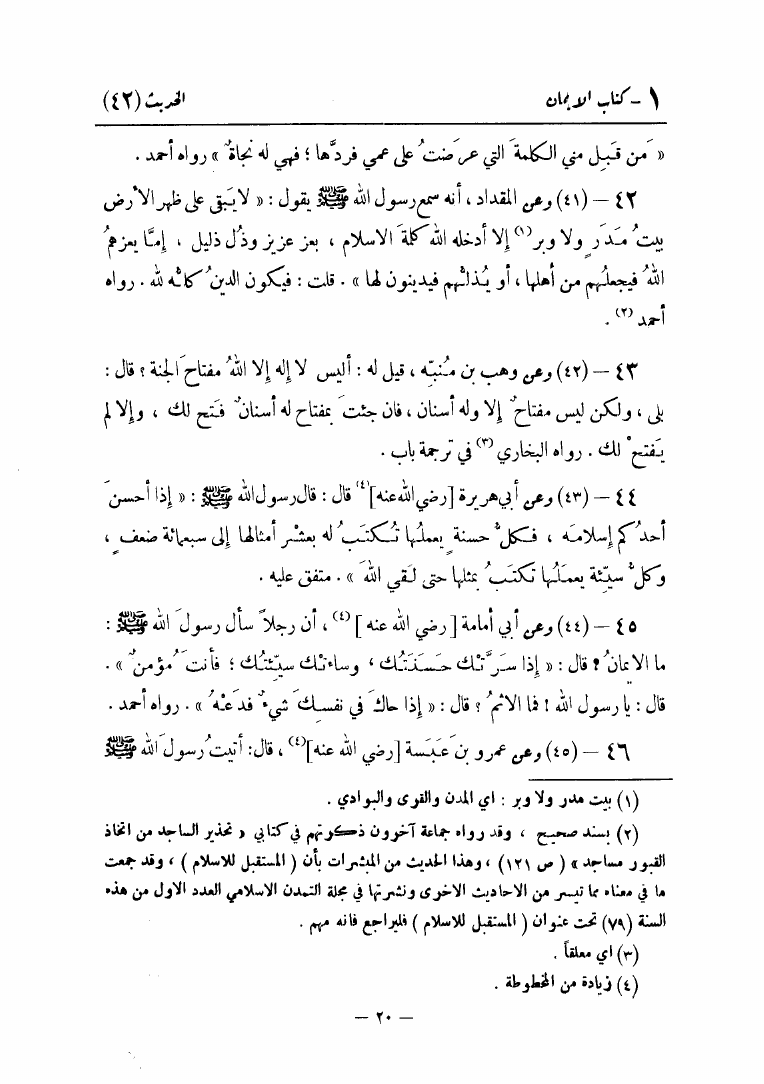 ١ - كتاب الايمان الحديث (٤٢)
« مَن قَبِل مني الكلمةَ التي عرَضتُ على عمي فردَّها ؛ فهي له نجاةٌ » رواه أحمد .
٤٢ – (٤١) وعن المقداد ، أنه سمع رسول الله ﷺ يقول : « لا يَبقى على ظهر الأرض
بيتُ مَدَرٍ ولا وبر(١) إلا أدخله الله كلمةَ الاسلام ، بعز عزيز وذُل ذليل ، إمَّا يعزهمُ
اللهُ فيجعلُهم من أهلها ، أو يُذلُّهم فيدينون لها » . قلت : فيكون الدينُ كلُّه لله . رواه
أحمد (٢) .
٤٣ – (٤٢) وعن وهب بن مُنبِّه ، قيل له : أليس لا إله إلا اللهُ مفتاحَ الجنة ؟ قال :
بلى ، ولكن ليس مفتاحٌ إلا وله أسنان ، فان جئتَ بمفتاح له أسنانٌ فَتح لك ، وإلا لم
يَفتحْ لك . رواه البخاري (٣) في ترجمة باب .
٤٤ – (٤٣) وعن أبي هريرة [رضي الله عنه](٤) قال : قال رسول الله ﷺ : « إذا أحسنَ
أحدُكم إسلامَه ، فكلُّ حسنةٍ يعملُها تُكتَبُ له بعشْرِ أمثالها إلى سبعمائة ضعفٍ ،
وكلُّ سيِّئة يعملُها تكتَبُ بمثلها حتى لقي اللهَ » . متفق عليه .
٤٥ – (٤٤) وعن أبي أمامة [ رضي الله عنه ] (٤) ، أن رجلاً سأل رسولَ الله ﷺ :
ما الايمانُ ؟ قال : « إذا سَرَّتْك حَسَنَتُك ، وساءتْك سيِّئتُك ؛ فأنتَ مُؤمنٌ » .
قال : يا رسول الله ! فما الاثمُ ؟ قال : « إذا حاكَ في نفسِكَ شيءٌ فدَعْهُ » . رواه أحمد .
٤٦ – (٤٥) وعن عمرو بن عَبَسة [رضي الله عنه](٤) ، قال: أتيتُ رسولَ الله ﷺ
(١) بيت مدر ولا وبر : اي المدن والقرى والبوادي .
(٢) بسند صحيح ، وقد رواه جماعة آخرون ذكرتهم في كتابي « تحذير الساجد من اتخاذ
القبور مساجد » ( ص ١٢١) ، وهذا الحديث من المبشرات بأن ( المستقبل للاسلام ) ، وقد جمعت
ما في معناه مما تيسر من الاحاديث الاخرى ونشرتها في مجلة التمدن الاسلامي العدد الاول من هذه
السنة (٧٩) تحت عنوان ( المستقبل للاسلام ) فليراجع فانه مهم .
(٣) اي معلقاً .
(٤) زيادة من المخطوطة .
– ٢٠ –